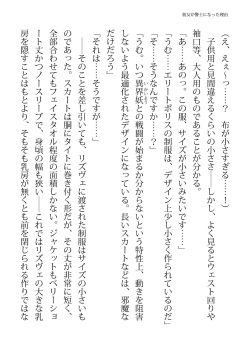 彼女が騎士になった理由
(え、ええ〜……？　布が小さすぎる……！)
　子供用と見間違えるくらいの小ささ――しかし、よく見るとウェスト回りや
袖口等、大人用のものであるとわかる。
「あ……あのっ。この服、サイズが小さいみたいです……」
「うむ……エリートポリスの制服は、デザイン上少し小さく作られているのだ」
「そ、そうなんですか……？」
「うむ。いつ異界妖との戦闘が始まるか分からないという特性上、動きを阻害
しないよう最適化されたデザインになっている。長いスカートなどは、邪魔な
だけだろう」
「それは……そうですが……」
　――そのことを差し引いても、リズヴェに渡された制服はサイズの小さいも
のであった。スカートは腰にタイトに巻き付く形だが、その丈が非常に短く、
全部合わせてもフェイスタオル程度の面積しかない。ジャケットもベリーショ
ート丈かつノースリーブで、身頃の幅も狭い――これではリズヴェの大きな乳
房を隠すことはもとより、そもそも乳房が無くとも前を閉じられる作りではな